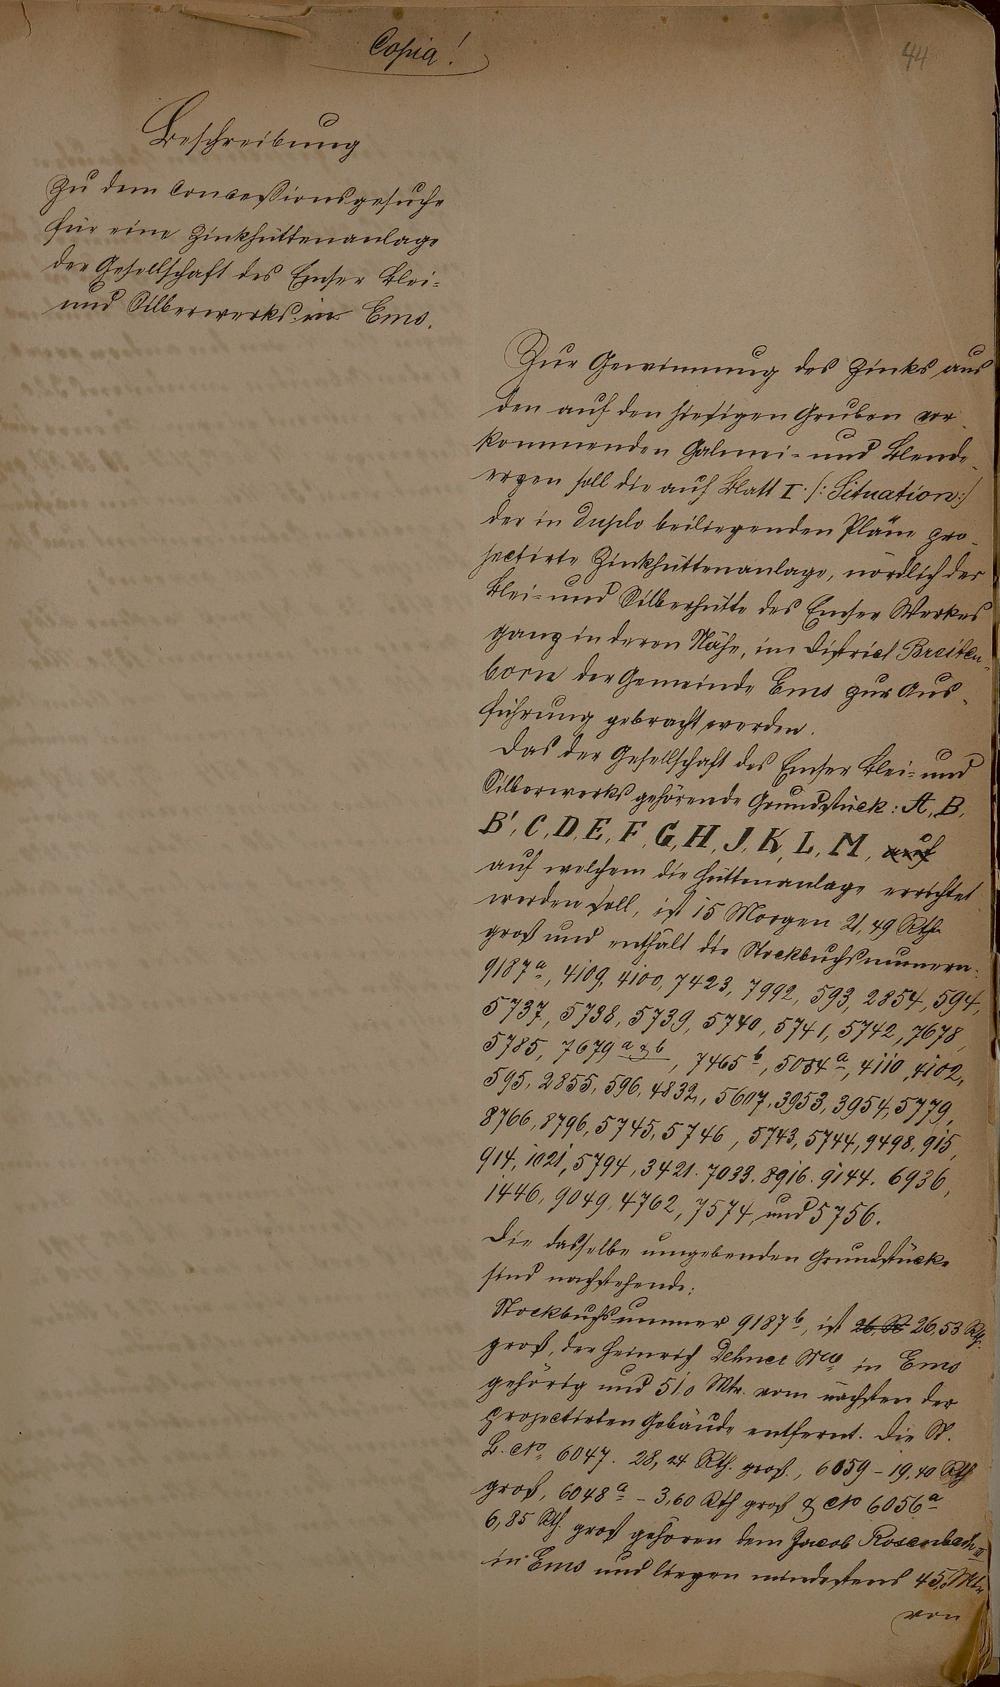 Copia!
44
Beschreibung
zu dem Concessionsgesuche
für eine Zinkhüttenanlage
der Gesellschaft des Emser Blei-
und Silberwerks in Ems.
Zur Gewinnung des Zinks aus
den auf den hiesigen Gruben vor-
kommenden Galmei- und Blende-
erzen soll die auf Blatt I. /: Situation :/
der in duplo beiliegenden Pläne pro-
jectirte Zinkhüttenanlage, nördlich der
Blei- und Silberhütte des Emser Werkes
ganz in deren Nähe, im District Breiten-
born der Gemeinde Ems zur Aus-
führung gebracht werden.
Das der Gesellschaft des Emser Blei- und
Silberwerks gehörende Grundstück: A, B,
B', C, D, E, F, G, H, J, K, L, M, auf
auf welchem die Hüttenanlage errichtet
werden soll, ist 15 Morgen 21,49 Rth.
groß und enthält die Stockbuchsnumern:
9187a, 4109, 4100, 7423, 7992, 593, 2854, 594,
5737, 5738, 5739, 5740, 5741, 5742, 7678,
5785, 7679 a & b, 7465 b, 5084 a, 4110, 4102,
595, 2855, 596, 4832, 5607, 3953, 3954, 5779,
8766, 8796, 5745, 5746, 5743, 5744, 9498, 915,
914, 1021, 5794, 3421. 7033. 8916. 9144. 6936,
1446, 9049, 4762, 7574, und 5756.
Die dasselbe umgebenden Grundstücke
sind nachstehende:
Stockbuchsnummer 9187 b, ist 26,53 Rth.
groß, der Heinrich Dehner Wwe in Ems
gehörig und 51,0 Mtr. vom nächsten der
projectirten Gebäude entfernt. Die St.
B. No 6047. 28,24 Rth. groß, 6059 - 19,40 Rth
groß, 6048 a - 3,60 Rth groß & No 6056 a
6,85 Rth. groß gehören dem Jacob Rosenbach II
in Ems und liegen mindestens 45,0 Mtr
von